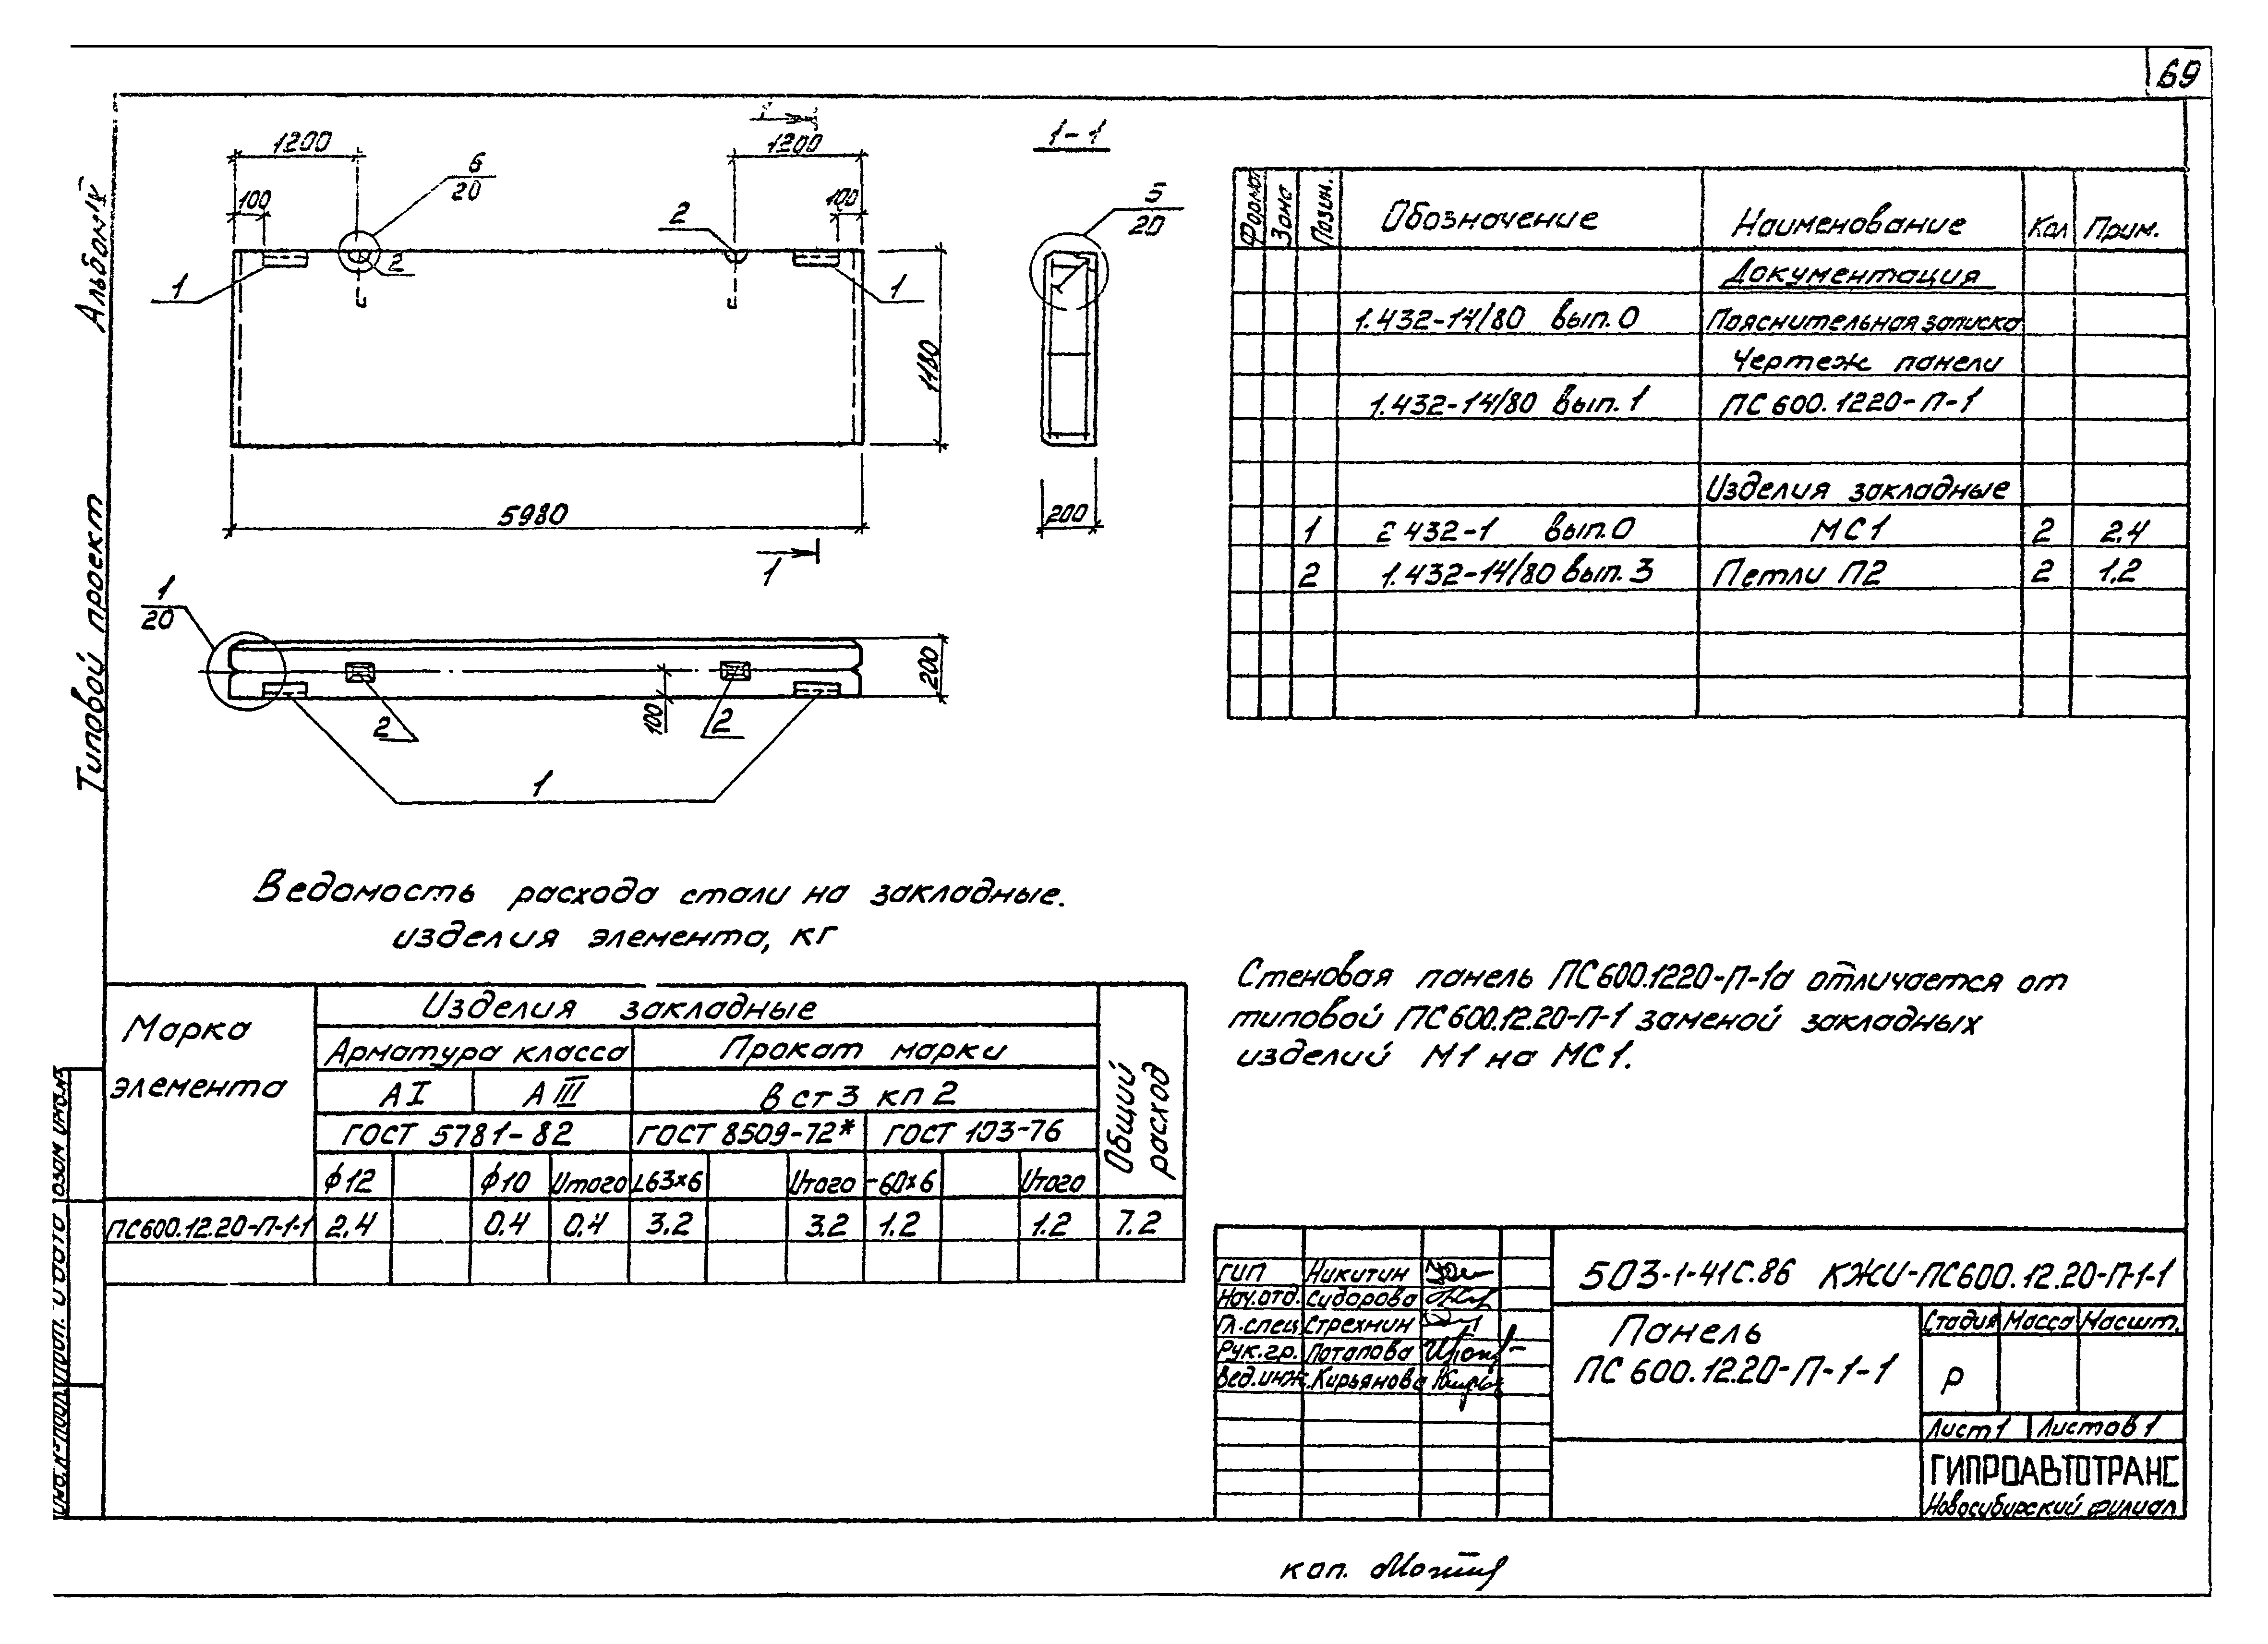 69
Альбом IV
Типовой проект
1200
1200
6
20
100
100
2
2
1
1
1180
5980
1
1-1
5
20
200
1
20
200
100
2
2
1
Формат Зона Позин. Обозначение Наименование Кол Прим.
Документация
1.432-14/80 вып.0 Пояснительная записка
Чертеж панели
1.432-14/80 вып.1 ПС 600.1220-П-1
Изделия закладные
1 2 432-1 вып.0 МС1 2 2.4
2 1.432-14/80 вып.3 Петли П2 2 1.2
Ведомость расхода стали на закладные.
изделия элемента, кг
Марка элемента
Изделия закладные
Общий расход
Арматура класса Прокат марки
А I А III В ст 3 кп 2
ГОСТ 5781-82 ГОСТ 8509-72* ГОСТ 103-76
ф12 ф10 Итого L63×6 Итого -60×6 Итого
ПС600.12.20-П-1-1 2.4 0.4 0.4 3.2 3.2 1.2 1.2 7.2
Стеновая панель ПС600.1220-П-1а отличается от
типовой ПС600.12.20-П-1 заменой закладных
изделий М1 на МС1.
ГИП Никитин
Нач.отд. Сидорова
Гл.спец Стрехнин
Рук.гр. Потапова
Вед.инж. Кирьянова
503-1-41С.86 КЖИ-ПС600.12.20-П-1-1
Панель
ПС 600.12.20-П-1-1
Стадия Масса Масшт.
Р
Лист 1 Листов 1
ГИПРОАВТОТРАНС
Новосибирский филиал
коп.